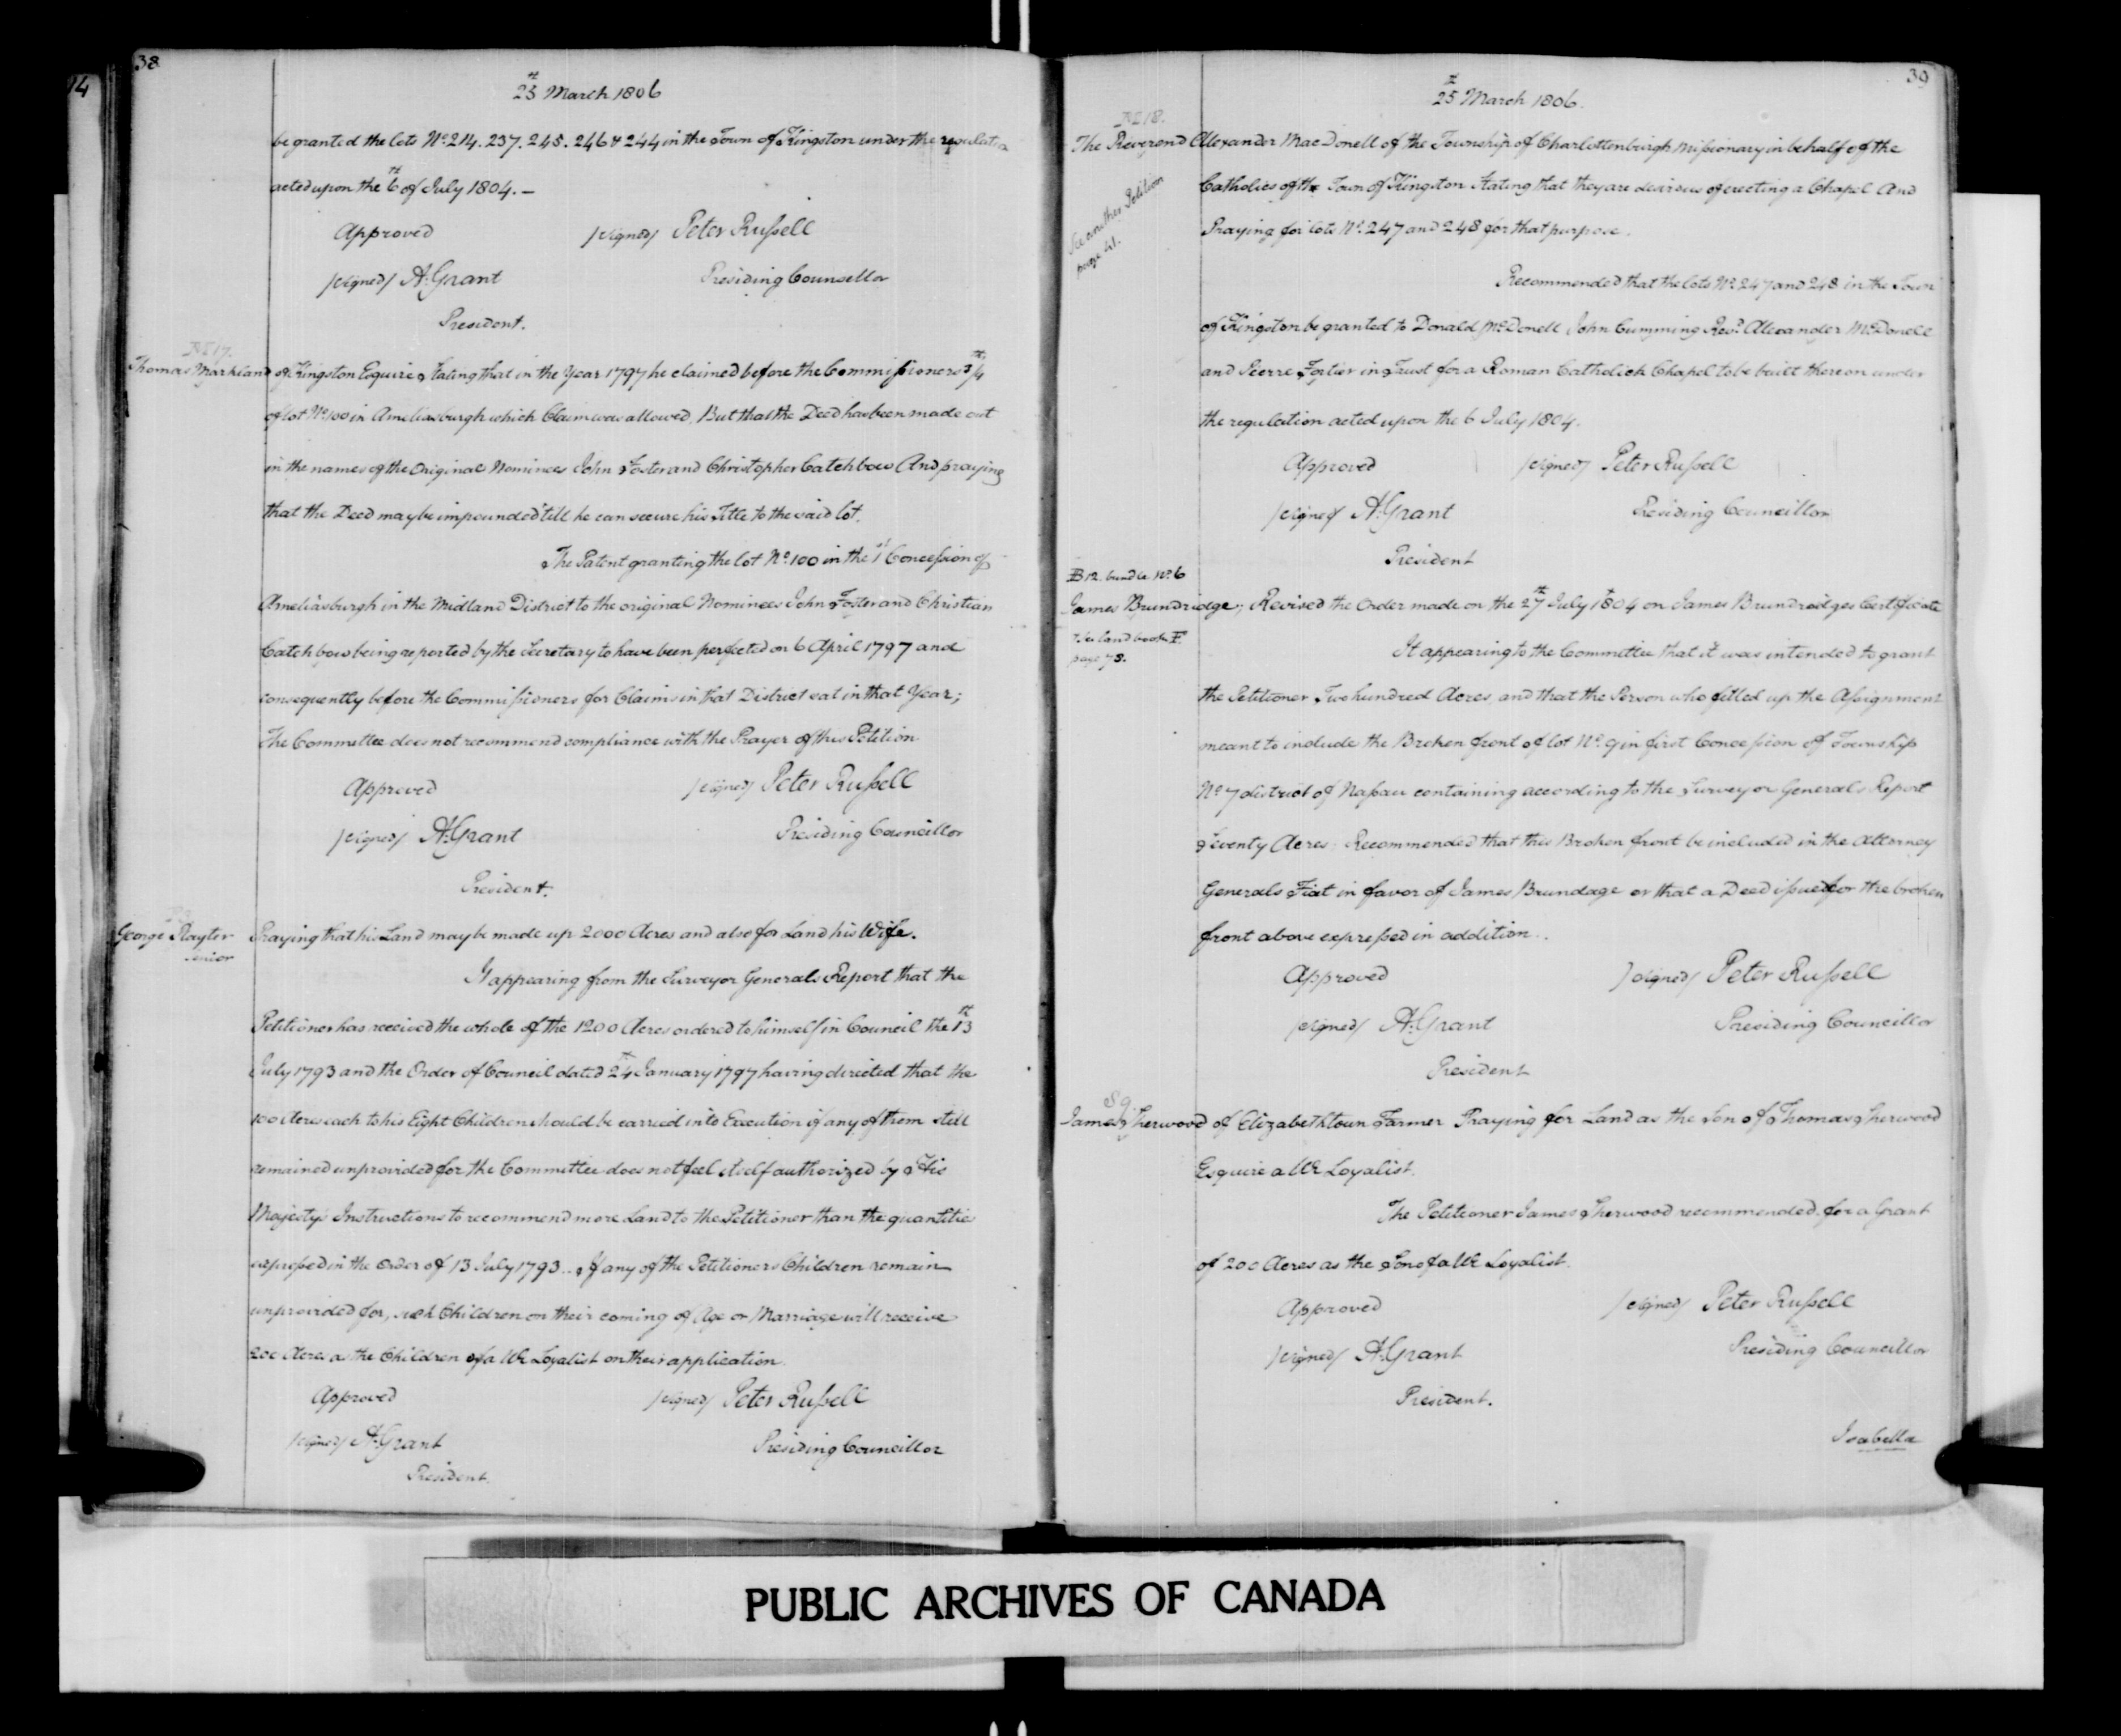 14
38
25th March 1806
be granted the lots No. 214. 237. 245. 246 & 244 in the Town of Kingston under the regulation
acted upon the 6th of July 1804. —
Approved /signed/ Peter Russell
/signed/ A: Grant Presiding Counsellor
President.
No. 17.
Thomas Markland of Kingston Esquire, Stating that in the Year 1797 he claimed before the Commissioners 3/4
of lot No. 100 in Ameliasburgh which Claim was allowed, But that the Deed has been made out
in the names of the Original Nominees John Foster and Christopher Catchbow And praying
that the Deed may be impounded till he can secure his Title to the said lot.
The Patent granting the lot No. 100 in the 1st Concession of
Ameliasburgh in the Midland District to the original Nominees John Foster and Christian
Catchbow being reported by the Secretary to have been perfected on 6 April 1797 and
consequently before the Commissioners for Claims in that District sat in that Year;
The Committee does not recommend compliance with the Prayer of this Petition
Approved /signed/ Peter Russell
/signed/ A: Grant Presiding Councillor
President.
George Slayter Senior Praying that his Land may be made up 2000 Acres and also for Land his Wife.
It appearing from the Surveyor Generals Report that the
Petitioner has received the whole of the 1200 Acres ordered to himself in Council the 13th
July 1793 and the Order of Council dated 24th January 1797 having directed that the
100 Acres each to his Eight Children should be carried into Execution if any of them still
remained unprovided for the Committee does not feel itself authorized by His
Majesty's Instructions to recommend more Land to the Petitioner than the quantitie
expressed in the Order of 13 July 1793.. If any of the Petitioners Children remain
unprovided for, such Children on their coming of Age or Marriage will receive
200 Acres as the Children of a UE Loyalist on their application.
Approved /signed/ Peter Russell
/signed/ A: Grant Presiding Councillor
President.
39
25th March 1806.
No. 18.
The Reverend Alexander MacDonell of the Township of Charlottenburgh Missionary in behalf of the
Catholics of the Town of Kingston Stating that they are desirous of erecting a Chapel And
Praying for lots No. 247 and 248 for that purpose.
See another Petition
page 41.
Recommended that the lots No. 247 and 248 in the Town
of Kingston be granted to Donald McDonell John Cumming Revd. Alexander McDonell
and Pierre Fortier in Trust for a Roman Catholick Chapel to be built thereon under
the regulation acted upon the 6 July 1804.
Approved /signed/ Peter Russell
/signed/ A: Grant Presiding Councillor
President
B 12. bundle No. 6
James Brundridge; Revised the Order made on the 27th July 1804 on James Brundridges Certificate
See land book F
page 78.
It appearing to the Committee that it was intended to grant
the Petitioner Two hundred Acres, and that the Person who filled up the Assignment
meant to include the Broken front of lot No. 9 in first Concession of Township
No. 7 district of Nassau containing according to the Surveyor Generals Report
Seventy Acres. Recommended that this Broken front be included in the Attorney
Generals Fiat in favor of James Brundage or that a Deed issue for the broken
front above expressed in addition..
Approved /signed/ Peter Russell
/signed/ A: Grant Presiding Councillor
President
S 9.
James Sherwood of Elizabethtown Farmer Praying for Land as the Son of Thomas Sherwood
Esquire a UE Loyalist.
The Petitioner James Sherwood recommended for a Grant
of 200 Acres as the Son of a UE Loyalist.
Approved /signed/ Peter Russell
/signed/ A: Grant Presiding Councillor
President.
Isabella
PUBLIC ARCHIVES OF CANADA